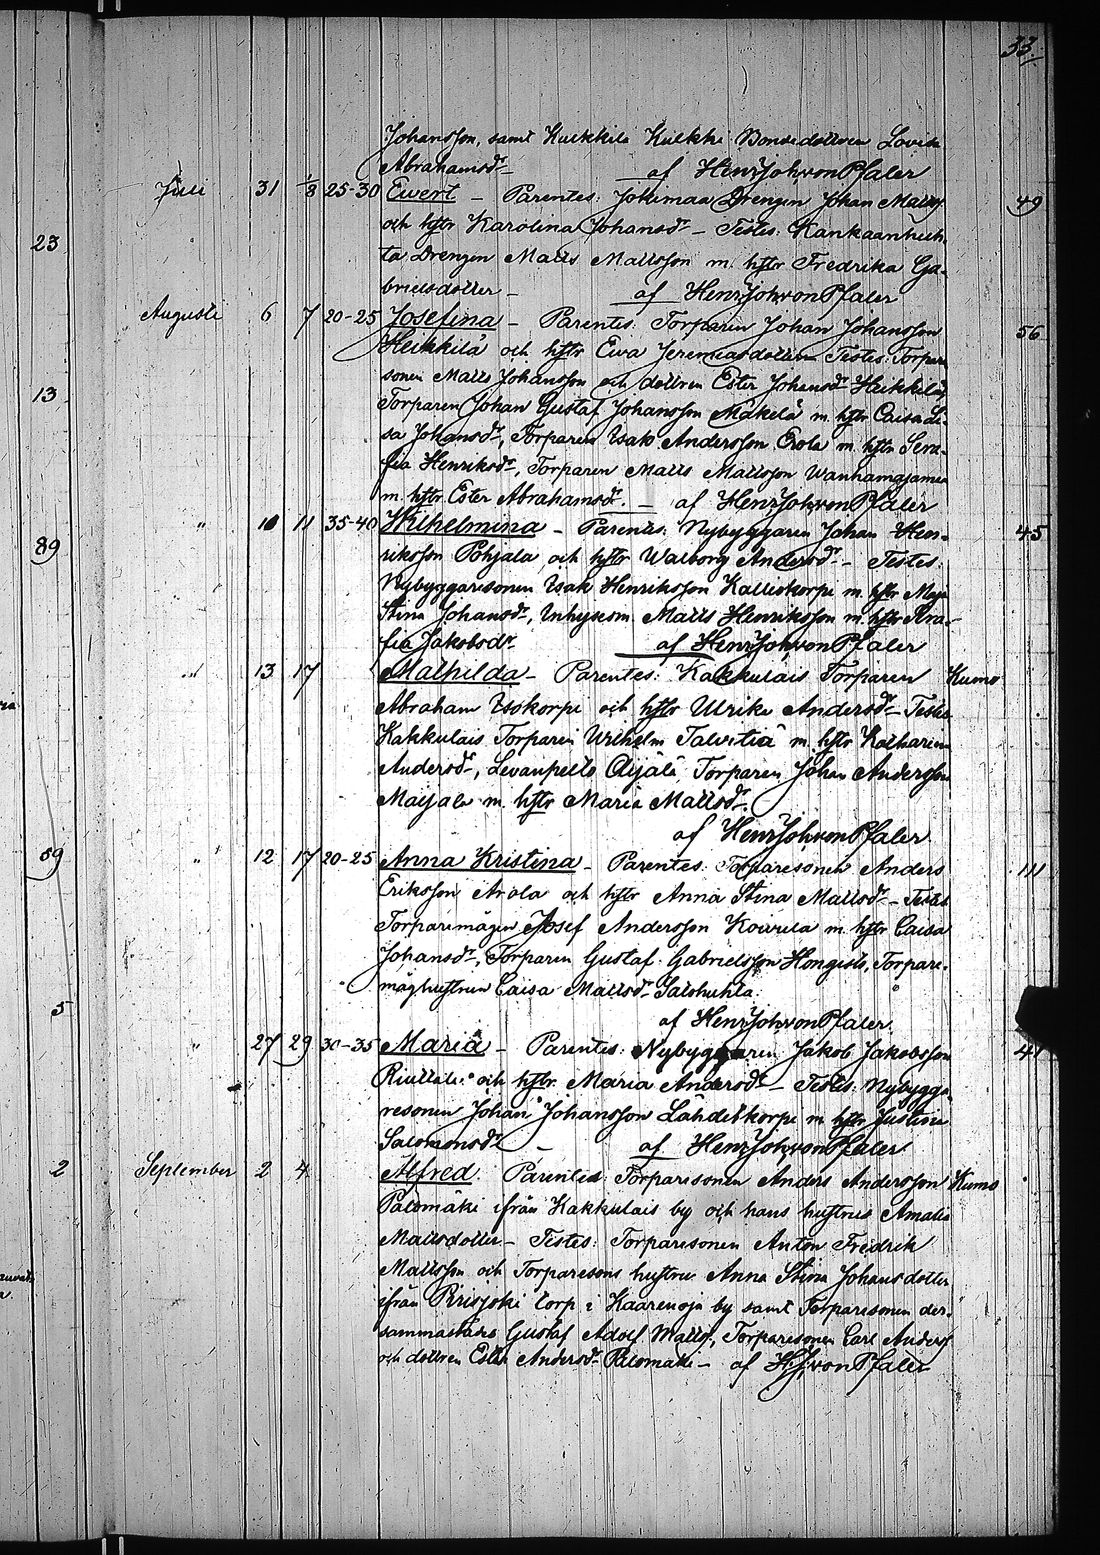 33.
Johansson, samt Kulkkila Kulkki Bondedottren Lovisa
Abrahamsdr — af HenrJoh,vonPfaler
Juli 31 1/8 25-30 Ewert — Parentes: Jokimaa Drengen Johan Mattss. 49
och hstr Karolina Johansdr — Testes: Kankaanhuh-
23
ta Drengen Matts Mattsson m. hstr Fredrika Ga-
brielsdotter — af HenrJoh,vonPfaler
Augusti 6 7 20-25 Josefina — Parentes: Torparen Johan Johansson 56
Heikkilä och hstr Ewa Jeremiasdotter Testes: Torpare
sonen Matts Johansson och dottren Ester Johansdr Heikkilä,
13
Torparen Johan Gustaf Johansson Mäkelä m. hstr Caisa Li-
sa Johansdr, Torparen Isak Andersson Erola m. hstr Sera-
fia Henriksdr, Torparen Matts Mattsson Wanhamajamaa
m. hstr Ester Abrahamsdr. — af HenrJoh,vonPfaler
" 10 11 35-40 Wilhelmina — Parentes: Nybyggaren Johan Hen- 45
89
riksson Pohjala och hstr Walborg Andersdr — Testes:
Nybyggaresonen Isak Henriksson Kalliokorpi m. hstr Maja
Stina Johansdr, Inhysesm. Matts Henriksson m. hstr Sera-
fia Jakobsdr af HenrJoh,vonPfaler
" 13 17 Mathilda — Parentes: Kakkulais Torparen Kumo
Abraham Isokorpi och hstr Ulrika Andersdr — Testes
Kakkulais Torparen Wilhelm Talvitiä m. hstr Katharina
Andersdr, Levanpelto Äijälä, Torparen Johan Andersson
Maijala m. hstr Maria Mattsdr.
af HenrJoh,vonPfaler.
59
" 12 17 20-25 Anna Kristina — Parentes: Torparesonen Anders 111
Eriksson Arola och hstr Anna Stina Mattsdr — Testes
Torparemågen Josef Andersson Koivula m. hstr Caisa
Johansdr, Torparen Gustaf Gabrielsson Hongisto, Torpare-
måghustrun Caisa Mattsdr Salohuhta.
5
af HenrJoh,vonPfaler.
" 27 29 30-35 Maria — Parentes: Nybyggaren Jakob Jakobsson 41
Riuttala och hstr Maria Andersdr — Testes: Nybygga-
resonen Johan Johansson Lähdekorpi m. hstr Justina
Salomonsdr — af HenrJoh,vonPfaler
2
September 2 4 Alfred. Parentes Torparesonen Anders Andersson Kumo
Palomäki ifrån Kakkulais by och hans hustru Amalia
Mattsdotter — Testes: Torparesonen Anton Fredrik
Mattsson och Torparesons hustru Anna Stina Johansdotter
ifrån torp i Kaarenoja by samt Torparesonen der-
sammastädes Gustaf Adolf Mattss., Torparesonen Carl Anderss
och dottren Ester Andersdr Palomäki — af H.J.vonPfaler